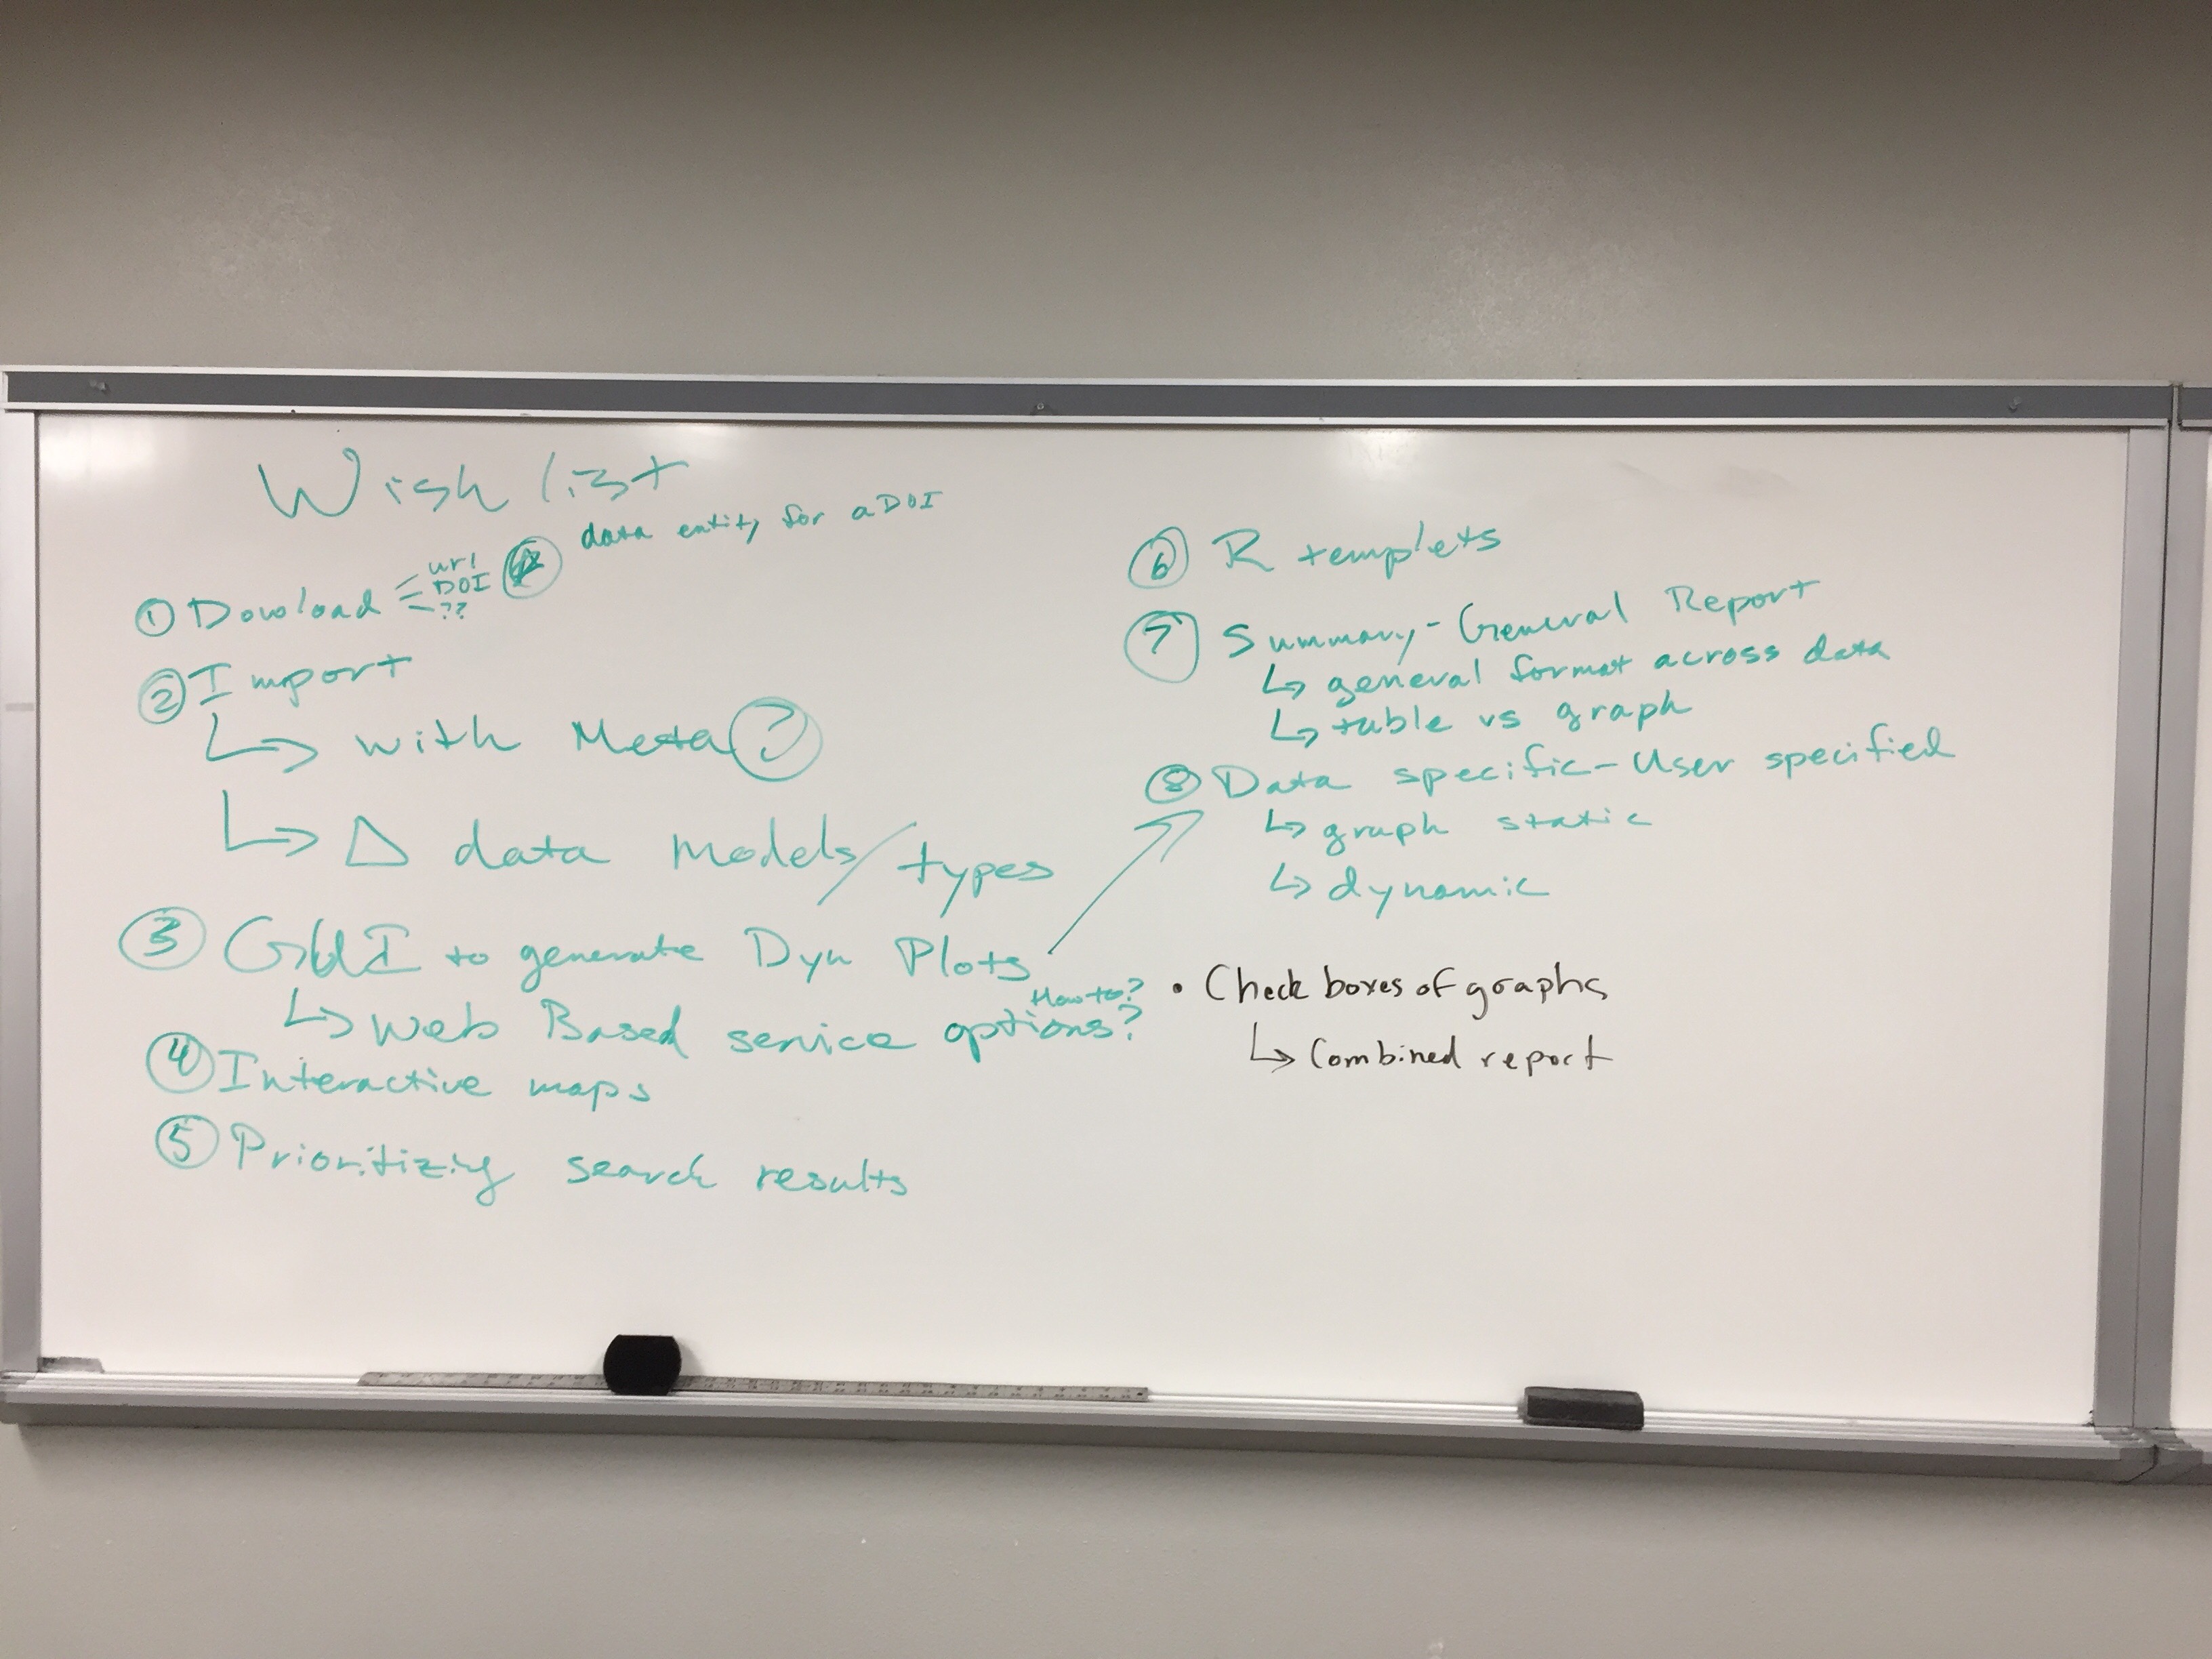 Wish list
data entity for a DOI
url
① Dowload DOI
??
② Import
↳ with Meta ?
↳ Δ data models/types
③ GUI to generate Dyn Plots
How to?
↳ Web Based service options?
④ Interactive maps
⑤ Prioritizing search results
⑥ R templets
⑦ Summary - General Report
↳ general format across data
↳ table vs graph
⑧ Data specific - User specified
↳ graph static
↳ dynamic
• Check boxes of graphs
↳ Combined report